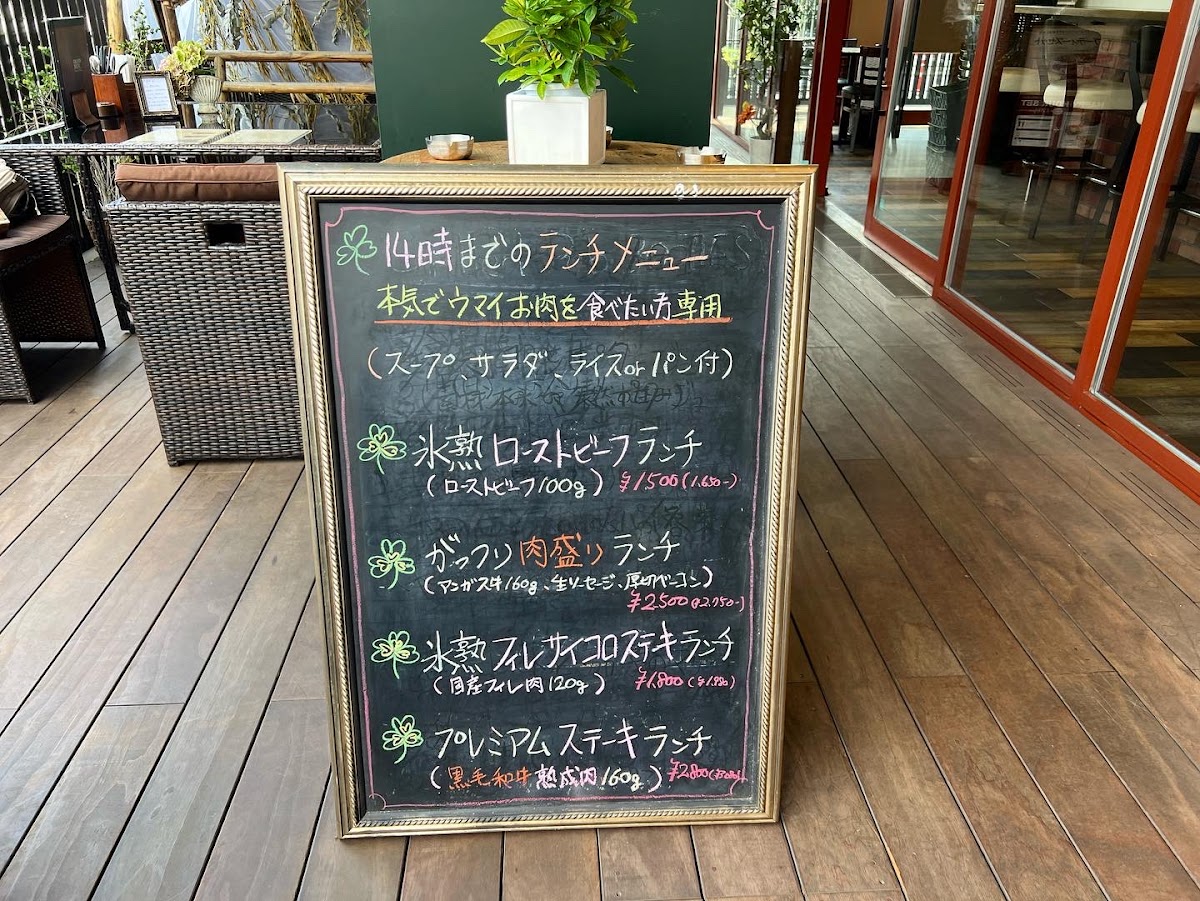 14時までのランチメニュー
本気でウマイお肉を食べたい方専用
(スープ、サラダ、ライスorパン付)
氷熟ローストビーフランチ
(ローストビーフ100g) ¥1,500(1,650-)
がっつり肉盛りランチ
(アンガス牛160g、生ソーセージ、厚切ベーコン)
¥2,500(¥2,750-)
氷熟フィレサイコロステキランチ
(国産フィレ肉120g) ¥1,800(¥1,980)
プレミアムステーキランチ
(黒毛和牛熟成肉160g) ¥2,800